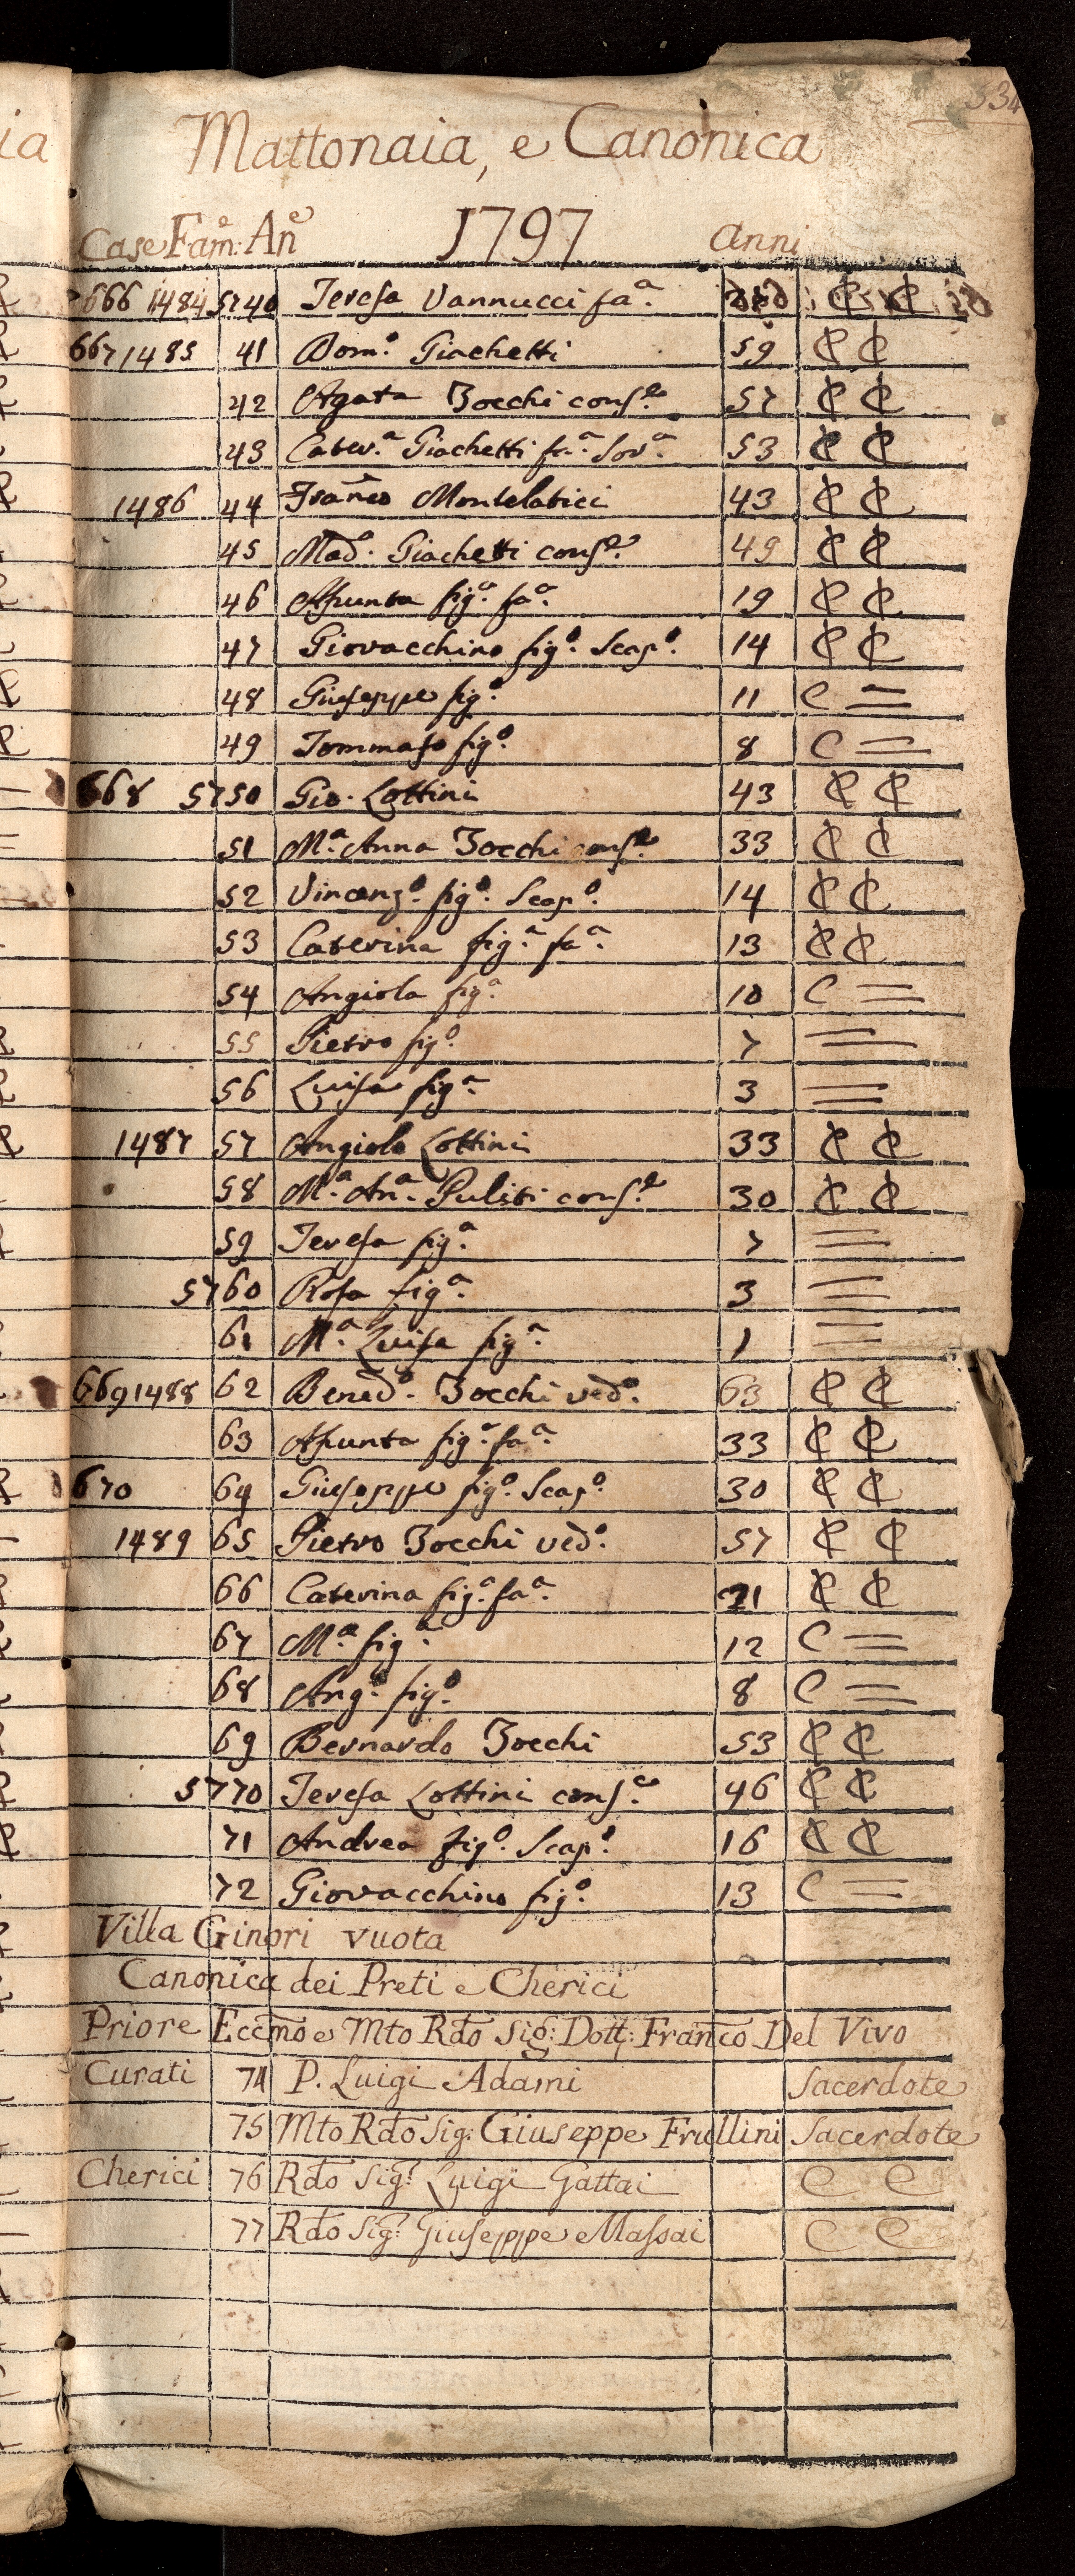 334
Mattonaia, e Canonica
Case Fam:e An:e 1797 Anni
666 1484 5740 Teresa Vannucci fa.a C C
667 1485 41 Dom.o Giachetti 59 C C
42 Agata Zocchi cons.e 57 C C
43 Cater.a Giachetti fa.a Sor.a 53 C C
1486 44 Franco Montelatici 43 C C
45 Mad.a Giachetti cons.e 49 C C
46 Asunta fig.a fa.a 19 C C
47 Giovacchino fig.o Scap.o 14 C C
48 Giuseppe fig.o 11 C =
49 Tommaso fig.o 8 C =
668 5750 Gio. Lottini 43 C C
51 M.a Anna Zocchi cons.e 33 C C
52 Vincenz.o fig.o Scap.o 14 C C
53 Caterina fig.a fa.a 13 C C
54 Angiola fig.a 10 C =
55 Pietro fig.o 7 =
56 Luisa fig.a 3 =
1487 57 Angiolo Lottini 33 C C
58 M.a An.a Puliti cons.e 30 C C
59 Teresa fig.a 7 =
5760 Rosa fig.a 3 =
61 M.a Luisa fig.a 1 =
669 1488 62 Bened.o Zocchi ved.o 63 C C
63 Asunta fig.a fa.a 33 C C
670 64 Giuseppe fig.o Scap.o 30 C C
1489 65 Pietro Zocchi ved.o 57 C C
66 Caterina fig.a fa.a 21 C C
67 M.a fig.a 12 C =
68 Ang.o fig.o 8 C =
69 Bernardo Zocchi 53 C C
5770 Teresa Lottini cons.e 46 C C
71 Andrea fig.o Scap.o 16 C C
72 Giovacchino fig.o 13 C =
Villa Ginori vuota
Canonica dei Preti e Cherici
Priore Eccmo e Mto Rdo Sig: Dott: Franco Del Vivo
Curati 74 P. Luigi Adami Sacerdote
75 Mto Rdo Sig: Giuseppe Frullini Sacerdote
Cherici 76 Rdo Sig: Luigi Gattai C C
77 Rdo Sig: Giuseppe Massai C C